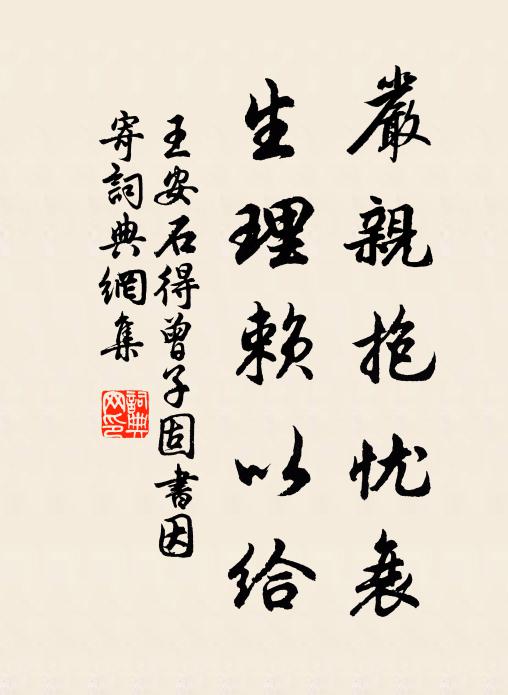 嚴親抱忧衰
生理賴以給
王安石得曾子固書因
寄詞典網集
詞典网印